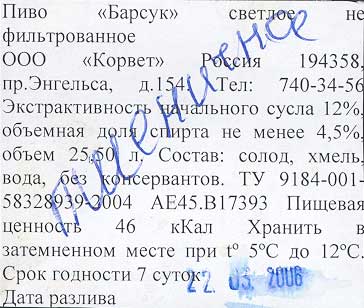 Пиво «Барсук» светлое не
фильтрованное
ООО «Корвет» Россия 194358,
пр.Энгельса, д.154. Тел: 740-34-56
Экстрактивность начального сусла 12%,
объемная доля спирта не менее 4,5%,
объем 25,50 л. Состав: солод, хмель,
вода, без консервантов. ТУ 9184-001-
58328939-2004 АЕ45.В17393 Пищевая
ценность 46 кКал Хранить в
затемненном месте при tº 5ºС до 12ºС.
Срок годности 7 суток
Дата разлива
22 03. 2006
пшеничное